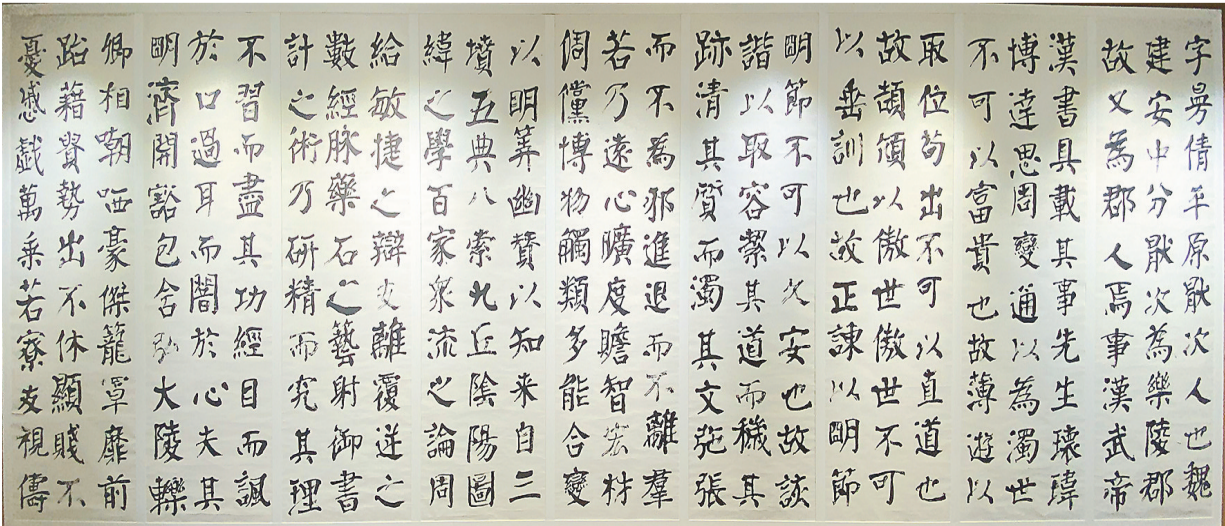 字曼倩平原厭次人也魏
建安中分厭次為樂陵郡
故又為郡人焉事漢武帝
漢書具載其事先生瓌瑋
博達思周變通以為濁世
不可以富貴也故薄遊以
取位苟出不可以直道也
故頡頏以傲世傲世不可
以垂訓也故正諫以明節
明節不可以久安也故詼
諧以取容絜其道而穢其
跡清其質而濁其文弛張
而不為邪進退而不離羣
若乃遠心曠度贍智宏材
倜儻博物觸類多能合變
以明筭幽贊以知来自三
墳五典八索九丘陰陽圖
緯之學百家衆流之論周
給敏捷之辯支離覆逆之
數經脉藥石之藝射御書
計之術乃研精而究其理
不習而盡其功經目而諷
於口過耳而闇於心夫其
明濟開豁包含弘大陵轢
卿相嘲哂豪傑籠罩靡前
跆藉貴勢出不休顯賤不
憂慼戲萬乘若寮友視儔